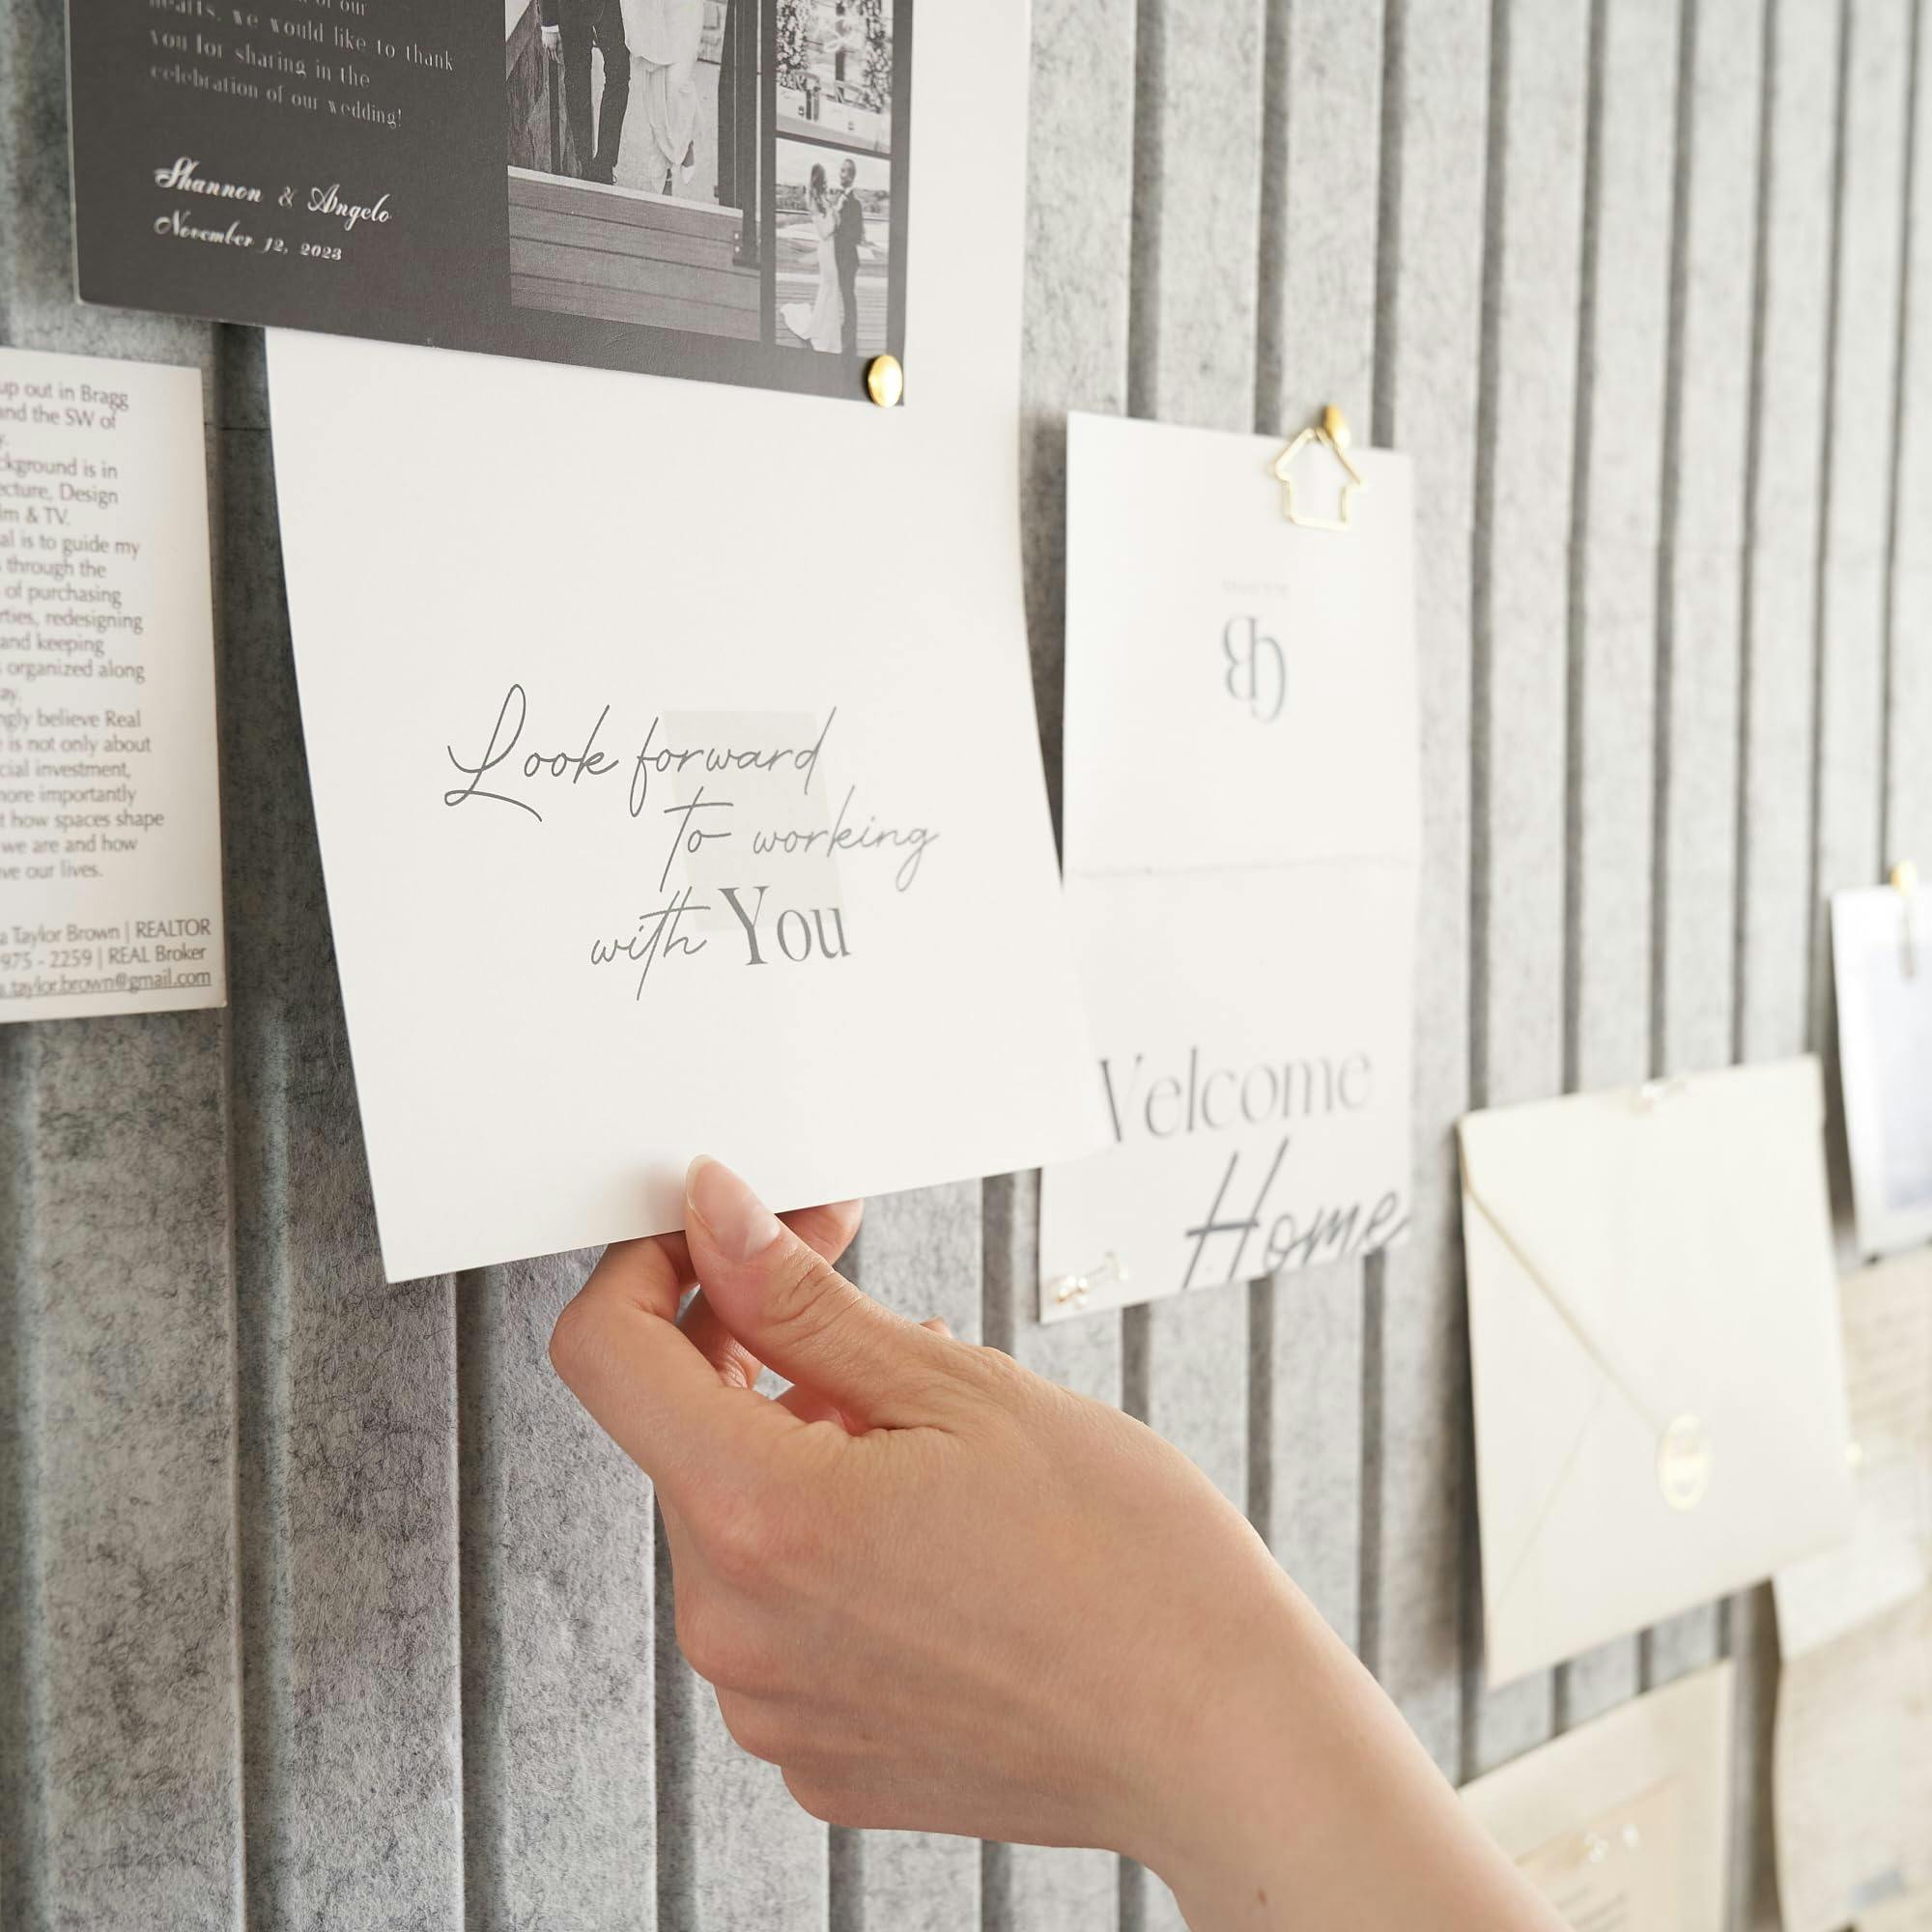 of our
hearts, we would like to thank
you for sharing in the
celebration of our wedding!
Shannon & Angelo
November 12, 2023
up out in Bragg
and the SW of
is in
Design
& TV.
is to guide my
through the
of purchasing
redesigning
and keeping
organized along
believe Real
is not only about
investment,
more importantly
how spaces shape
we are and how
our lives.
Taylor Brown | REALTOR
975 - 2259 | REAL Broker
a.taylor.brown@gmail.com
Look forward
to working
with You
Welcome
Home